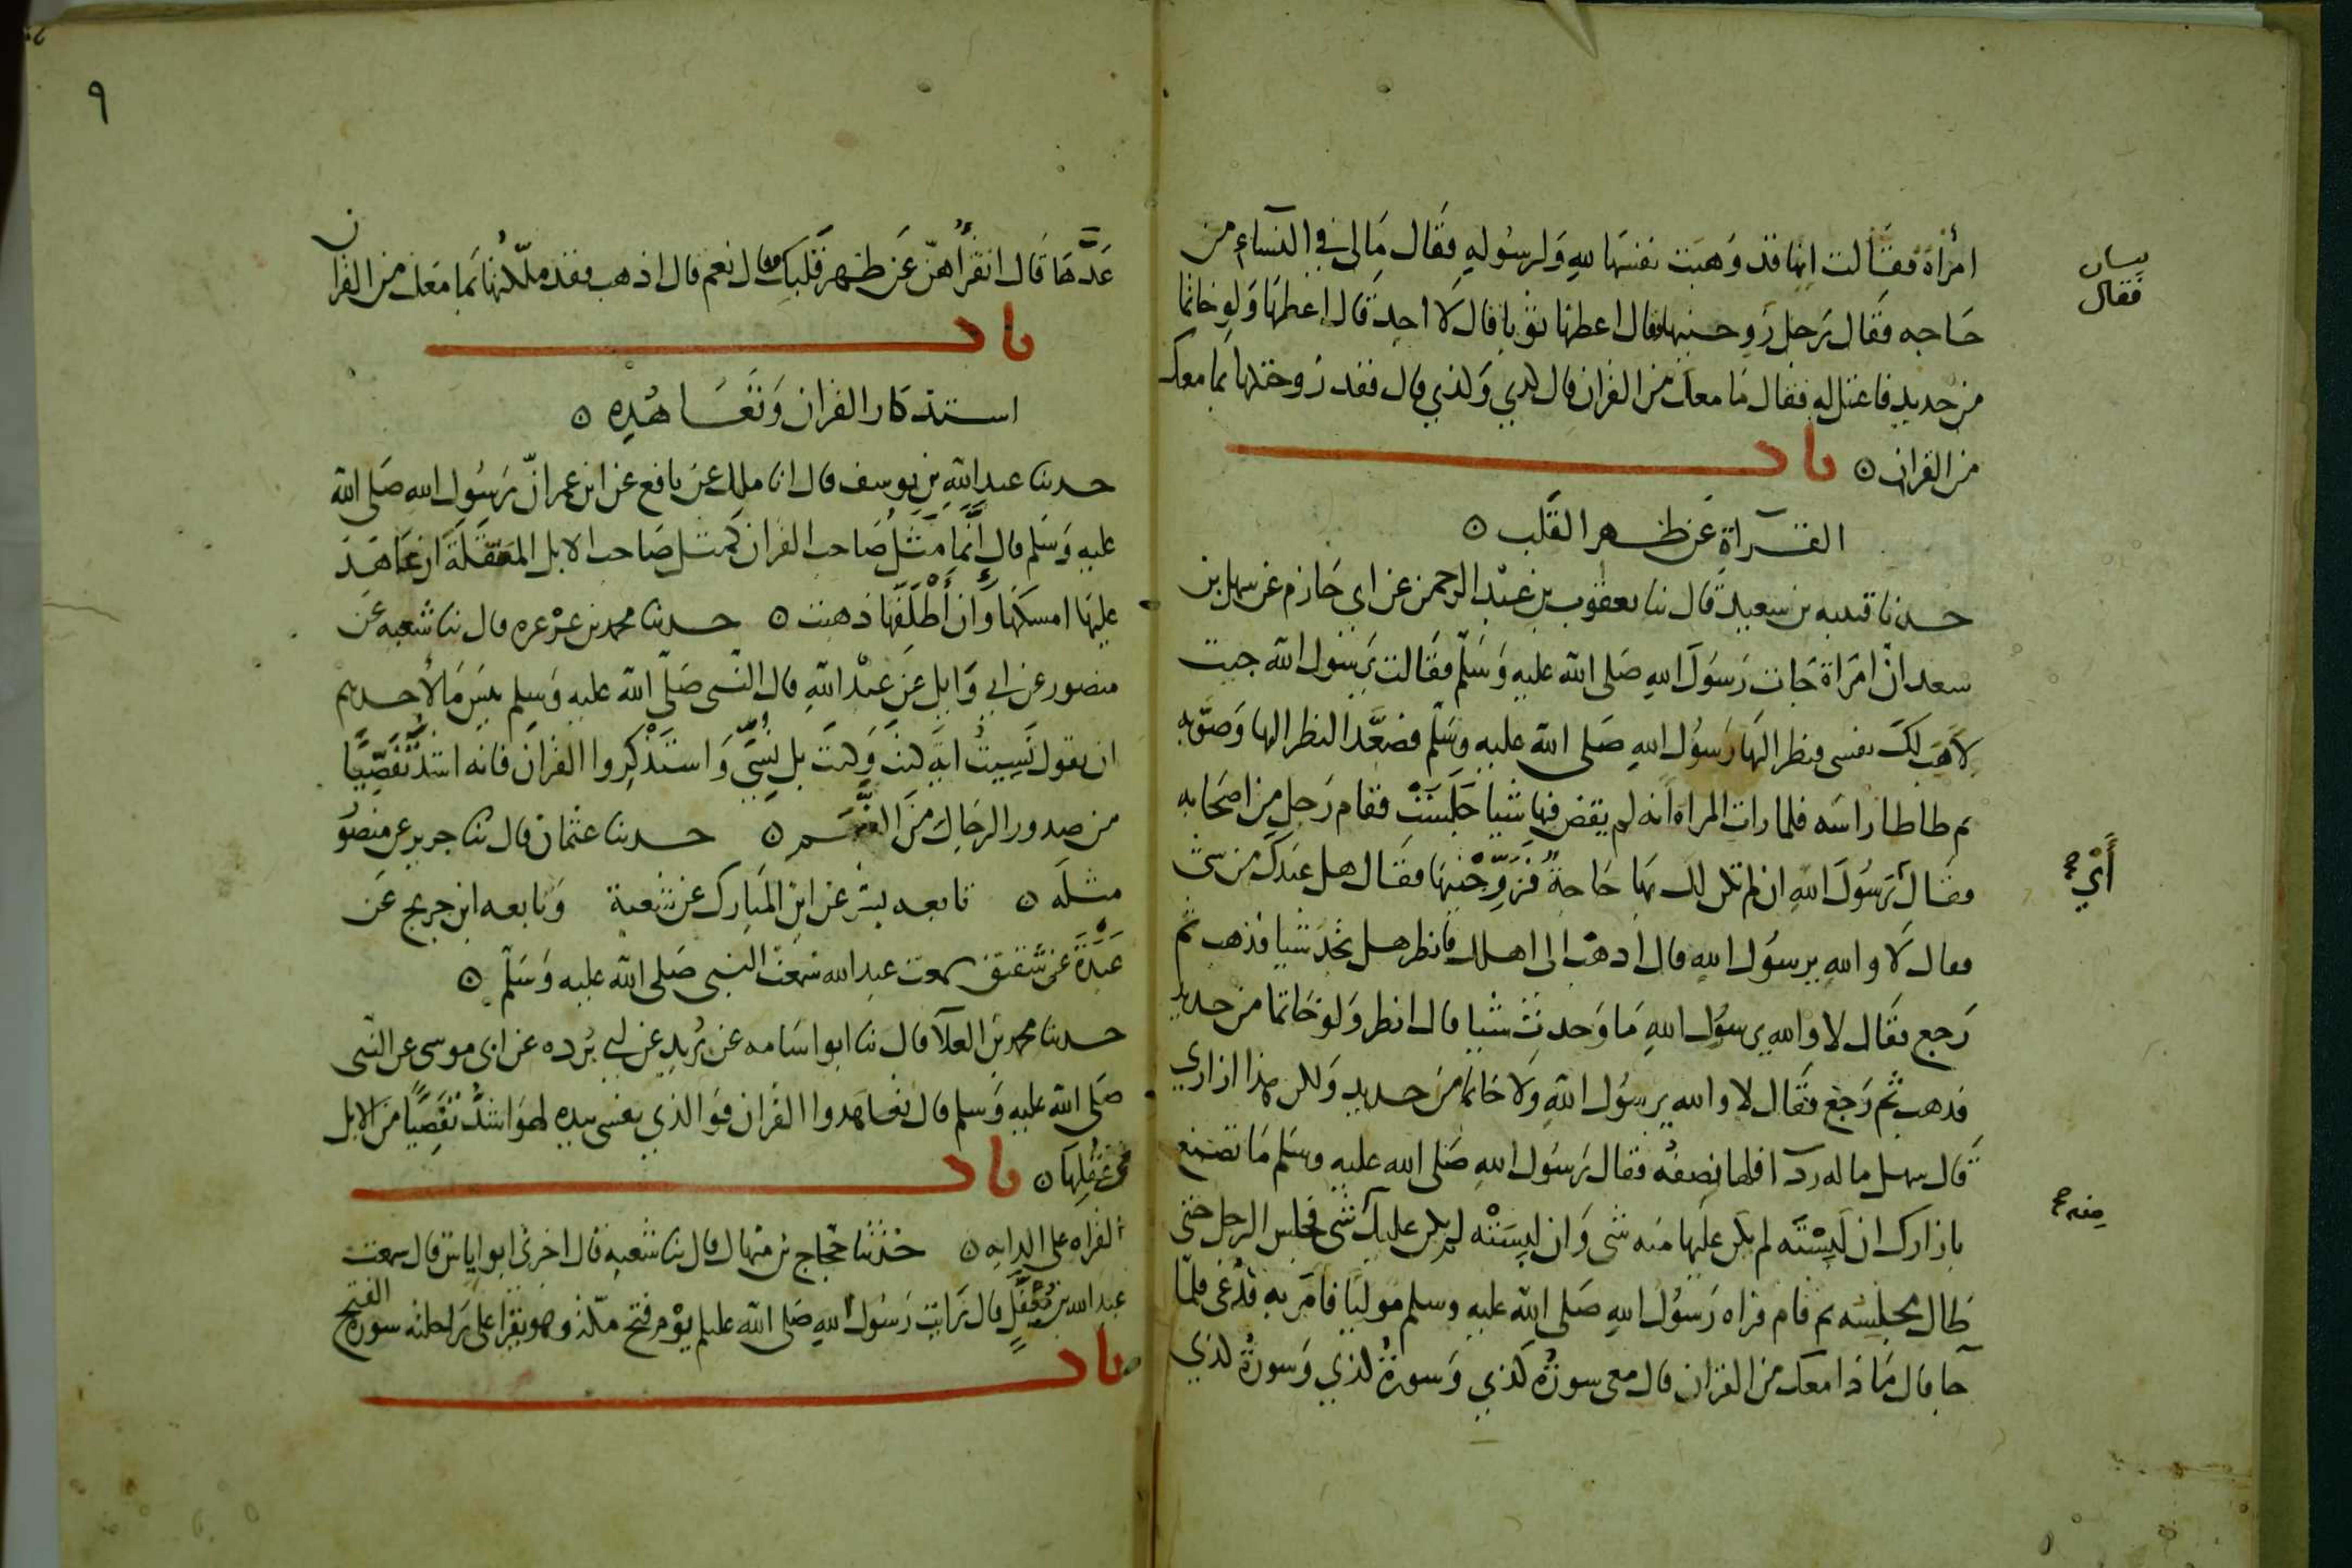 امرأة فقالت انها قد وهبت نفسها لله ولرسوله فقال مالى في النساء من
بيان
فقال
حاجه فقال رجل زوجنيها فقال اعطها ثوبا قال لا اجد قال اعطها ولو خاتما
من حديد فاعتل له فقال ما معك من القران قال كذي وكذي قال فقد زوجتكها بما معك
من القران ۝ باب
القراة عن ظهر القلب ۝
حدثنا قتيبه بن سعيد قال ثنا يعقوب بن عبد الرحمن عن ابي حازم عن سهل بن
سعد ان امراة جات رسول الله صلى الله عليه وسلم فقالت يرسول الله جيت
لاهب لك نفسى فنظر اليها رسول الله صلى الله عليه وسلم فصعد النظر اليها وصوبه
ثم طاطا راسه فلما رات المراة انه لم يقض فيها شيا جلست فقام رجل من اصحابه
فقال يرسول الله ان لم تكن لك بها حاجة فزوجنيها فقال هل عندك من شى
أي صح
فقال لا والله يرسول الله قال اذهب الى اهلك فانظر هل تجد شيا فذهب ثم
رجع فقال لا والله يرسول الله ما وجدت شيا قال انظر ولو خاتما من حديد
فذهب ثم رجع فقال لا والله يرسول الله ولا خاتما من حديد ولكن هذا ازاري
قال سهل ما له رداء فلها نصفه فقال رسول الله صلى الله عليه وسلم ما تصنع
بازارك ان لبسته لم يكن عليها منه شى وان لبسته لم يكن عليك شى فجلس الرجل حتى
منه صح
طال مجلسه ثم قام فراه رسول الله صلى الله عليه وسلم موليا فامر به فدعى فلما
جا قال ماذا معك من القران قال معى سورة كذي وسورة كذي وسورة كذي
٩
عدها قال اتقرأهن عن ظهر قلبك قال نعم قال اذهب فقد ملكتكها بما معك من القران
باب
استذكار القران وتعاهده ۝
حدثنا عبد الله بن يوسف قال انا ملك عن نافع عن ابن عمر ان رسول الله صلى الله
عليه وسلم قال انما مثل صاحب القران كمثل صاحب الابل المعقلة ان عاهد
عليها امسكها وان أطلقها ذهبت ۝ حدثنا محمد بن عرعره قال ثنا شعبه عن
منصور عن ابي وايل عن عبد الله قال النبي صلى الله عليه وسلم بيس ما لاحدهم
ان يقول نسيت اية كيت وكيت بل نسي واستذكروا القران فانه اشد تفصيا
من صدور الرجال من النعم ۝ حدثنا عثمان قال ثنا جرير عن منصور
مثله ۝ تابعه بشر عن ابن المبارك عن شعبة وتابعه ابن جريج عن
عبدة عن شقيق سمعت عبد الله سمعت النبي صلى الله عليه وسلم ۝
حدثنا محمد بن العلا قال ثنا ابو اسامه عن بريد عن ابي برده عن ابي موسى عن النبي
صلى الله عليه وسلم قال تعاهدوا القران فو الذي نفسى بيده لهو اشد تفصيا من الابل
في عقلها ۝ باب
القراه على الدابه ۝ حدثنا حجاج بن منهال قال ثنا شعبه قال اخبرنى ابو اياس قال سمعت
عبد الله بن مغفل قال رايت رسول الله صلى الله عليه وسلم يوم فتح مكة وهو يقرا على راحلته سورة الفتح
باب